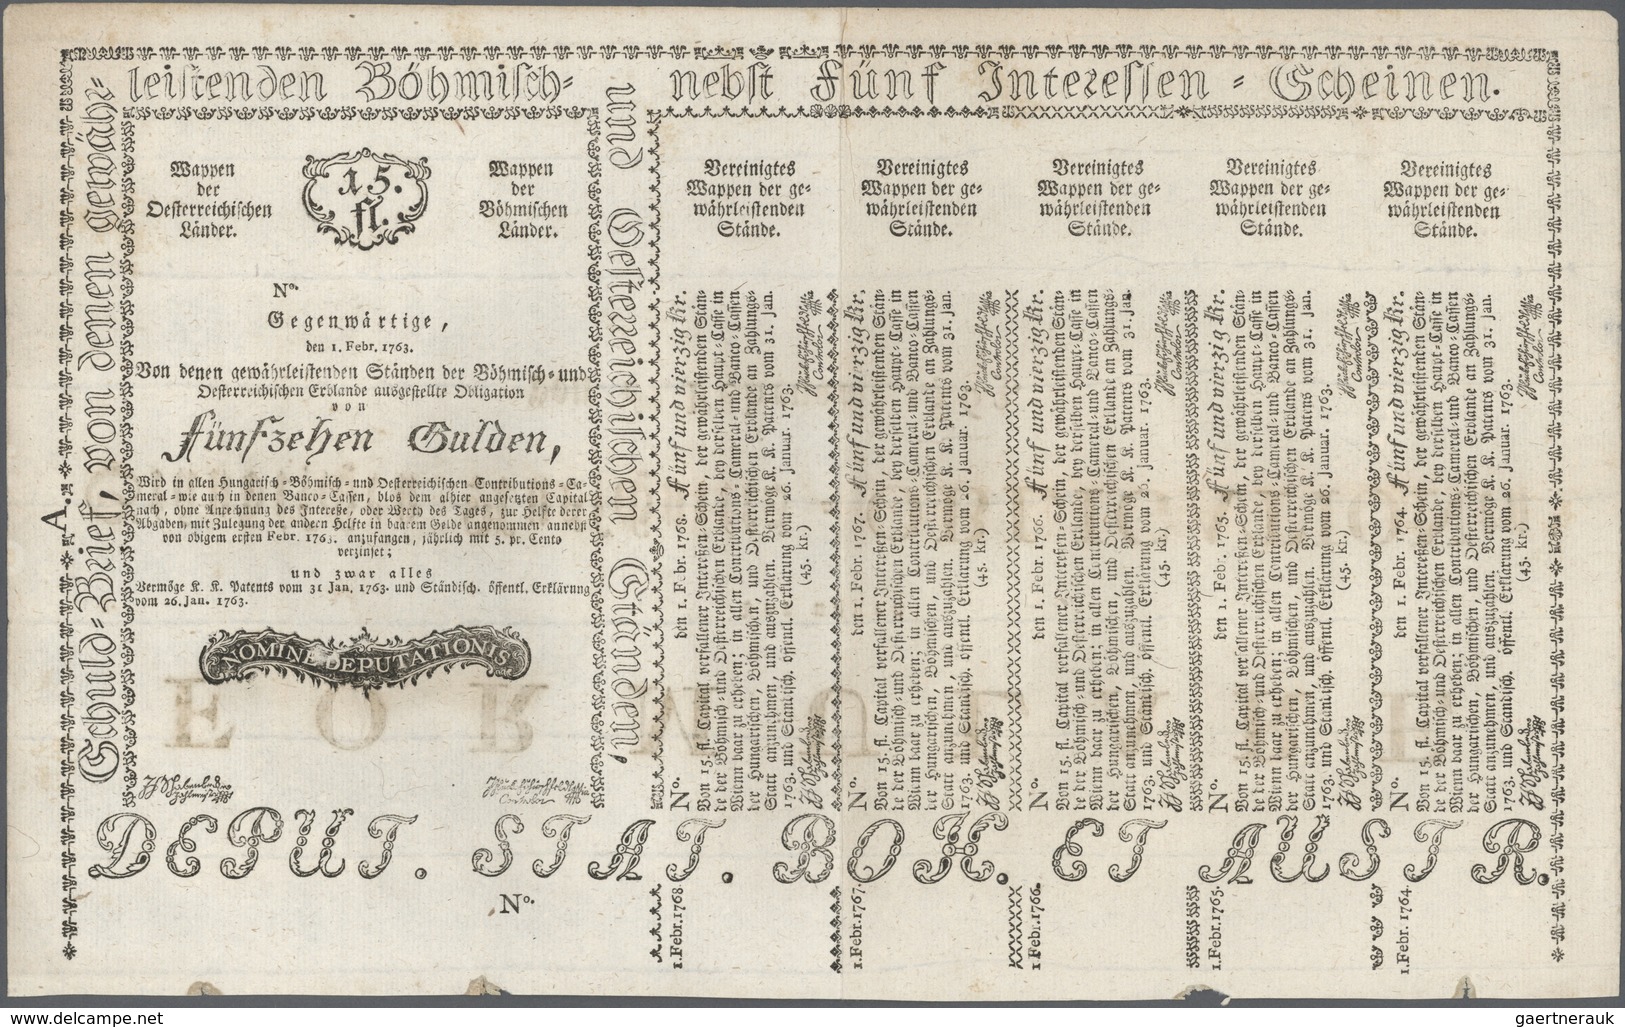 A.
Schuld-Brief, von denen gewähr-
leistenden Böhmisch-
und Oesterreichischen Ländern,
nebst Fünf Interessen-Scheinen.
Wappen
der
Oesterreichischen
Länder.
15.
fl.
Wappen
der
Böhmischen
Länder.
No.
Gegenwärtige,
den 1. Febr. 1763.
Von denen gewährleistenden Ständen der Böhmisch- und
Oesterreichischen Erblande ausgestellte Obligation
von
Fünfzehen Gulden,
Wird in allen Hungarisch-Böhmisch- und Oesterreichischen Contributions-Ca-
meral- wie auch in denen Banco-Cassen, blos dem alhier angesetzten Capital
nach, ohne Anrechnung des Intereße, oder Werth des Tages, zur Helfte derer
Abgaben, mit Zulegung der andern Helfte in baarem Gelde angenommen annebst
von obigem ersten Febr. 1763. anzufangen, jährlich mit 5. pr. Cento
verzinset;
und zwar alles
Vermöge K. K. Patents vom 31 Jan. 1763. und Ständisch. öffentl. Erklärung
vom 26. Jan. 1763.
NOMINE DEPUTATIONIS
Vereinigtes
Wappen der ge-
währleistenden
Stände.
Vereinigtes
Wappen der ge-
währleistenden
Stände.
Vereinigtes
Wappen der ge-
währleistenden
Stände.
Vereinigtes
Wappen der ge-
währleistenden
Stände.
Vereinigtes
Wappen der ge-
währleistenden
Stände.
No. den 1. Febr. 1768. Fünf und vierzig kr.
Von 15. fl. Capital verfallener Interessen-Schein, der gewährleistenden Stän-
de der Böhmisch- und Oesterreichischen Erblande, bey derselben Haupt-Casse in
Wienn baar zu erheben; in allen Contributions-Cameral- und Banco-Cassen
der Hungarischen, Böhmischen, und Oesterreichischen Erblande an Zahlungs-
Statt anzunehmen, und auszuzahlen. Vermöge K. K. Patents vom 31. Jan.
1763. und Ständisch. öffentl. Erklärung vom 26. Januar. 1763.
(45. kr.)
No. den 1. Febr. 1767. Fünf und vierzig kr.
Von 15. fl. Capital verfallener Interessen-Schein, der gewährleistenden Stän-
de der Böhmisch- und Oesterreichischen Erblande, bey derselben Haupt-Casse in
Wienn baar zu erheben; in allen Contributions-Cameral- und Banco-Cassen
der Hungarischen, Böhmischen, und Oesterreichischen Erblande an Zahlungs-
Statt anzunehmen, und auszuzahlen. Vermöge K. K. Patents vom 31. Jan.
1763. und Ständisch. öffentl. Erklärung vom 26. Januar. 1763.
(45. kr.)
No. den 1. Febr. 1766. Fünf und vierzig kr.
Von 15. fl. Capital verfallener Interessen-Schein, der gewährleistenden Stän-
de der Böhmisch- und Oesterreichischen Erblande, bey derselben Haupt-Casse in
Wienn baar zu erheben; in allen Contributions-Cameral- und Banco-Cassen
der Hungarischen, Böhmischen, und Oesterreichischen Erblande an Zahlungs-
Statt anzunehmen, und auszuzahlen. Vermöge K. K. Patents vom 31. Jan.
1763. und Ständisch. öffentl. Erklärung vom 26. Januar. 1763.
(45. kr.)
No. den 1. Febr. 1765. Fünf und vierzig kr.
Von 15. fl. Capital verfallener Interessen-Schein, der gewährleistenden Stän-
de der Böhmisch- und Oesterreichischen Erblande, bey derselben Haupt-Casse in
Wienn baar zu erheben; in allen Contributions-Cameral- und Banco-Cassen
der Hungarischen, Böhmischen, und Oesterreichischen Erblande an Zahlungs-
Statt anzunehmen, und auszuzahlen. Vermöge K. K. Patents vom 31. Jan.
1763. und Ständisch. öffentl. Erklärung vom 26. Januar. 1763.
(45. kr.)
No. den 1. Febr. 1764. Fünf und vierzig kr.
Von 15. fl. Capital verfallener Interessen-Schein, der gewährleistenden Stän-
de der Böhmisch- und Oesterreichischen Erblande, bey derselben Haupt-Casse in
Wienn baar zu erheben; in allen Contributions-Cameral- und Banco-Cassen
der Hungarischen, Böhmischen, und Oesterreichischen Erblande an Zahlungs-
Statt anzunehmen, und auszuzahlen. Vermöge K. K. Patents vom 31. Jan.
1763. und Ständisch. öffentl. Erklärung vom 26. Januar. 1763.
(45. kr.)
DEPUT. STAT. BOH. ET AUSTR.
No.
1. Febr. 1768.
1. Febr. 1767.
1. Febr. 1766.
1. Febr. 1765.
1. Febr. 1764.
www.delcampe.net
gaertnerauk